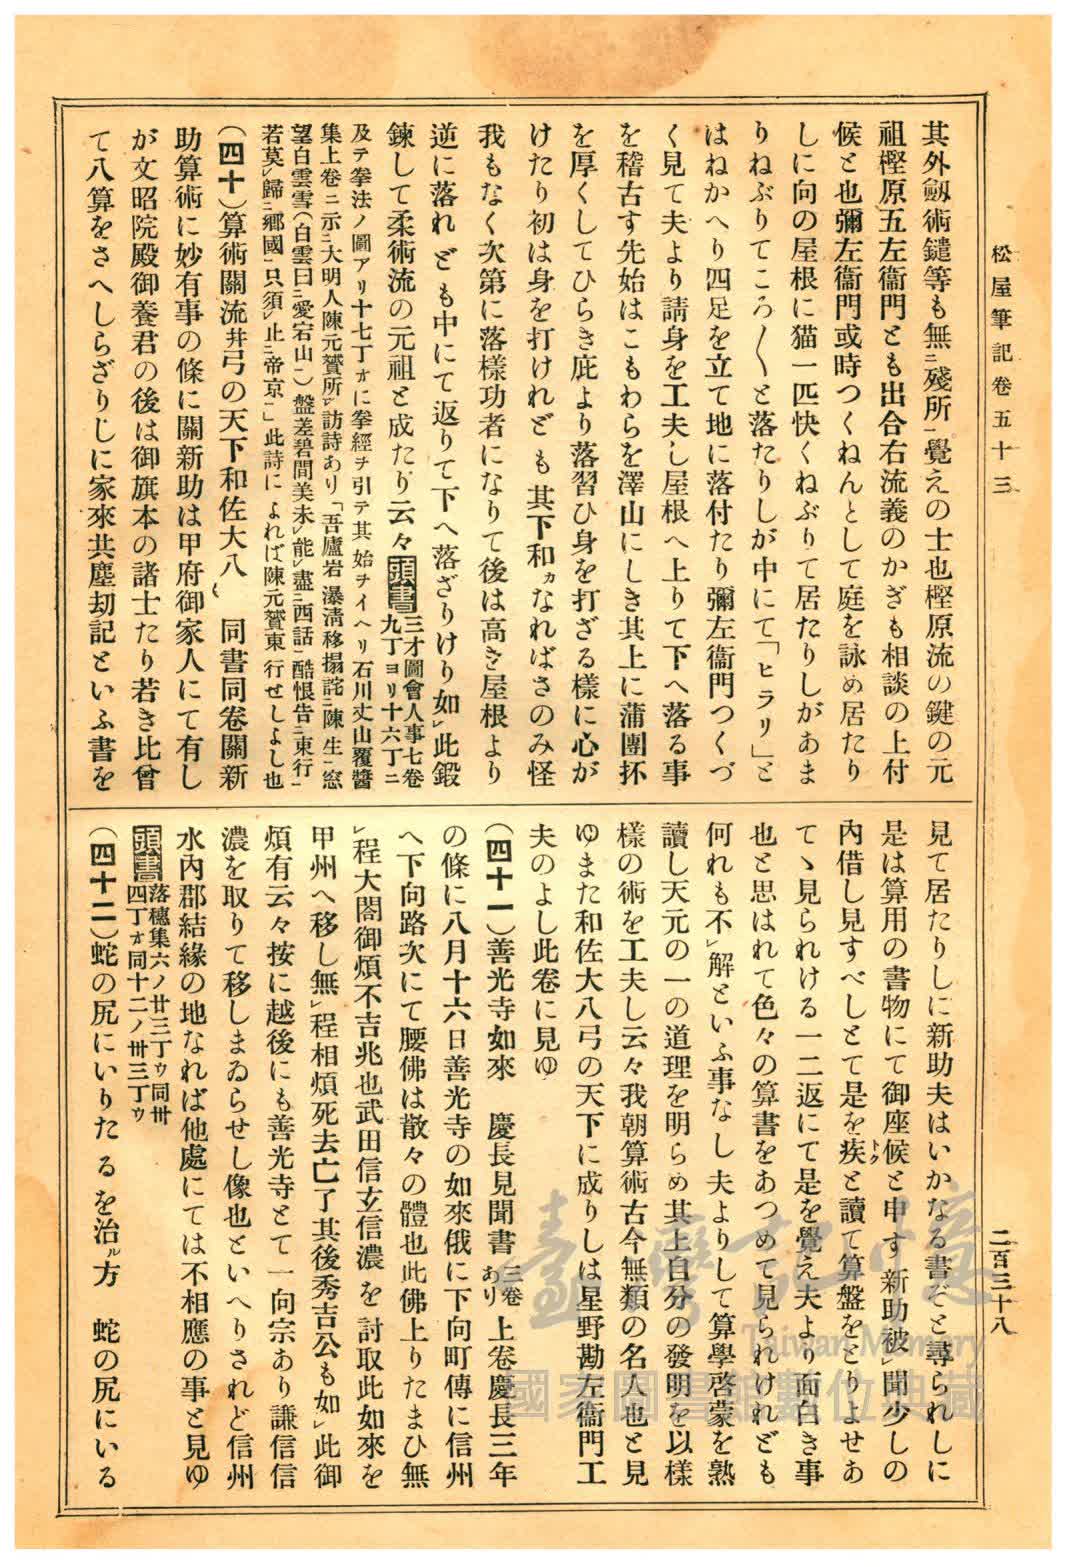 松屋筆記卷五十三
二百三十八
其外劔術鑓等も無ニ殘所一覺えの士也樫原流の鍵の元
祖樫原五左衞門とも出合右流義のかぎも相談の上付
候と也彌左衞門或時つくねんとして庭を詠め居たり
しに向の屋根に猫一匹快くねぶりて居たりしがあま
りねぶりてころ〳〵と落たりしが中にて「ヒラリ」と
はねかへり四足を立て地に落付たり彌左衞門つくづ
く見て夫より請身を工夫し屋根へ上りて下へ落る事
を稽古す先始はこもわらを澤山にしき其上に蒲團抔
を厚くしてひらき庇より落習ひ身を打ざる樣に心が
けたり初は身を打けれども其下和カなればさのみ怪
我もなく次第に落樣功者になりて後は高き屋根より
逆に落れども中にて返りて下へ落ざりけり如レ此鍛
鍊して柔術流の元祖と成たり云々頭書三才圖會人事七卷
九丁ヨリ十六丁ニ
及テ拳法ノ圖アリ十七丁オに拳經ヲ引テ其始ヲイヘリ石川丈山覆醬
集上卷ニ示ニ大明人陳元贇所レ訪詩あり「吾廬岩瀑淸移榻詫ニ陳生一窓
望白雲雪(白雲曰ニ愛宕山一)盤差碧間美未レ能レ盡ニ西話一酷恨告ニ東行一
若莫レ歸ニ鄕國一只須レ止ニ帝京一」此詩によれば陳元贇東行せしよし也
(四十)算術關流幷弓の天下和佐大八 同書同卷關新
助算術に妙有事の條に關新助は甲府御家人にて有し
が文昭院殿御養君の後は御旗本の諸士たり若き比曾
て八算をさへしらざりしに家來共塵劫記といふ書を
見て居たりしに新助夫はいかなる書ぞと尋られしに
是は算用の書物にて御座候と申す新助被レ聞少しの
內借し見すべしとて是を疾トクと讀て算盤をとりよせあ
てゝ見られける一二返にて是を覺え夫より面白き事
也と思はれて色々の算書をあつめて見られけれども
何れも不レ解といふ事なし夫よりして算學啓蒙を熟
讀し天元の一の道理を明らめ其上自分の發明を以樣
樣の術を工夫し云々我朝算術古今無類の名人也と見
ゆまた和佐大八弓の天下に成りしは星野勘左衞門工
夫のよし此卷に見ゆ
(四十一)善光寺如來 慶長見聞書三卷あり上卷慶長三年
の條に八月十六日善光寺の如來俄に下向町傳に信州
へ下向路次にて腰佛は散々の體也此佛上りたまひ無
レ程大閤御煩不吉兆也武田信玄信濃を討取此如來を
甲州へ移し無レ程相煩死去亡了其後秀吉公も如レ此御
煩有云々按に越後にも善光寺とて一向宗あり謙信信
濃を取りて移しまゐらせし像也といへりされど信州
水內郡結緣の地なれば他處にては不相應の事と見ゆ
頭書落穗集六ノ廿三丁ウ同卅
四丁オ同十二ノ卅三丁ウ
(四十二)蛇の尻にいりたるを治ル方 蛇の尻にいる
臺灣記憶
Taiwan Memory
國家圖書館數位典藏